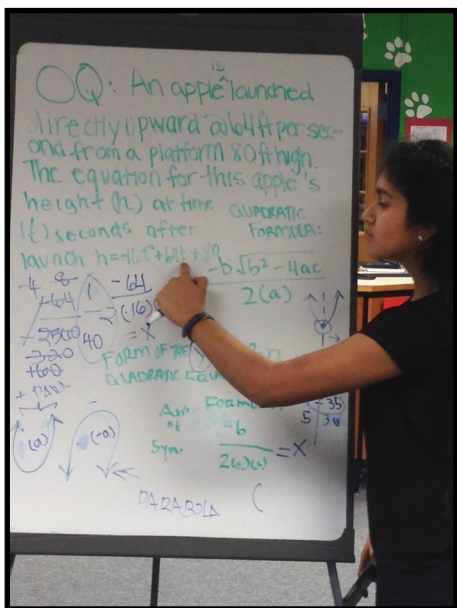 OQ: An apple is launched
directly upward @ 64 ft per sec-
ond from a platform 80 ft high.
The equation for this apple's
height (h) at time
(t) seconds after
launch h=-16t²+64t+80
QUADRATIC
FORMULA:
-b√b² - 4ac
2(a)
-4 8
-64
40
-64
-2(16)
= X
-320
FORM OF THE
QUADRATIC
(a)
(-a)
PARABOLA
Formula
Sym.
-b
= X
35
5